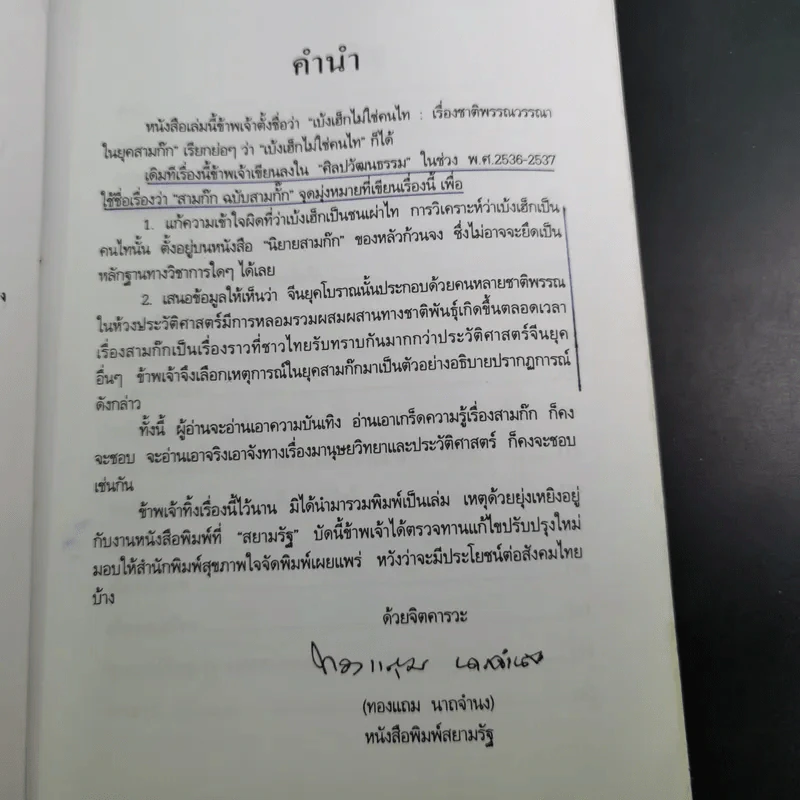 คำนำ
หนังสือเล่มนี้ข้าพเจ้าตั้งชื่อว่า "เบ้งเฮ็กไม่ใช่คนไท : เรื่องชาติพรรณวรรณา
ในยุคสามก๊ก" เรียกย่อๆ ว่า "เบ้งเฮ็กไม่ใช่คนไท" ก็ได้
เดิมทีเรื่องนี้ข้าพเจ้าเขียนลงใน "ศิลปวัฒนธรรม" ในช่วง พ.ศ.2536-2537
ใช้ชื่อเรื่องว่า "สามก๊ก ฉบับสามกั๊ก" จุดมุ่งหมายที่เขียนเรื่องนี้ เพื่อ
1. แก้ความเข้าใจผิดที่ว่าเบ้งเฮ็กเป็นชนเผ่าไท การวิเคราะห์ว่าเบ้งเฮ็กเป็น
คนไทนั้น ตั้งอยู่บนหนังสือ "นิยายสามก๊ก" ของหลัวก้วนจง ซึ่งไม่อาจจะยึดเป็น
หลักฐานทางวิชาการใดๆ ได้เลย
2. เสนอข้อมูลให้เห็นว่า จีนยุคโบราณนั้นประกอบด้วยคนหลายชาติพรรณ
ในห้วงประวัติศาสตร์มีการหลอมรวมผสมผสานทางชาติพันธุ์เกิดขึ้นตลอดเวลา
เรื่องสามก๊กเป็นเรื่องราวที่ชาวไทยรับทราบกันมากกว่าประวัติศาสตร์จีนยุค
อื่นๆ ข้าพเจ้าจึงเลือกเหตุการณ์ในยุคสามก๊กมาเป็นตัวอย่างอธิบายปรากฏการณ์
ดังกล่าว
ทั้งนี้ ผู้อ่านจะอ่านเอาความบันเทิง อ่านเอาเกร็ดความรู้เรื่องสามก๊ก ก็คง
จะชอบ จะอ่านเอาจริงเอาจังทางเรื่องมานุษยวิทยาและประวัติศาสตร์ ก็คงจะชอบ
เช่นกัน
ข้าพเจ้าทิ้งเรื่องนี้ไว้นาน มิได้นำมารวมพิมพ์เป็นเล่ม เหตุด้วยยุ่งเหยิงอยู่
กับงานหนังสือพิมพ์ที่ "สยามรัฐ" บัดนี้ข้าพเจ้าได้ตรวจทานแก้ไขปรับปรุงใหม่
มอบให้สำนักพิมพ์สุขภาพใจจัดพิมพ์เผยแพร่ หวังว่าจะมีประโยชน์ต่อสังคมไทย
บ้าง
ด้วยจิตคารวะ
ทองแถม นาถจำนง
(ทองแถม นาถจำนง)
หนังสือพิมพ์สยามรัฐ